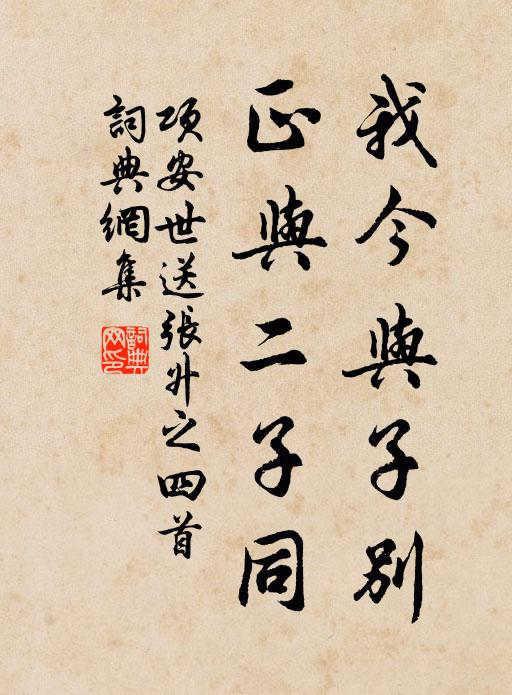 我今與子別
正與二子同
項安世送張升之四首
詞典網集
詞典網印